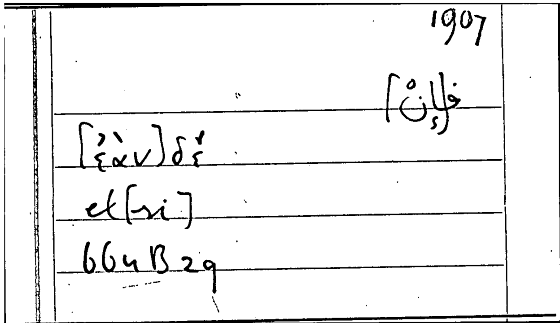 1907
فإنْ]
[ἐὰν] δέ
et [si]
664 B 29